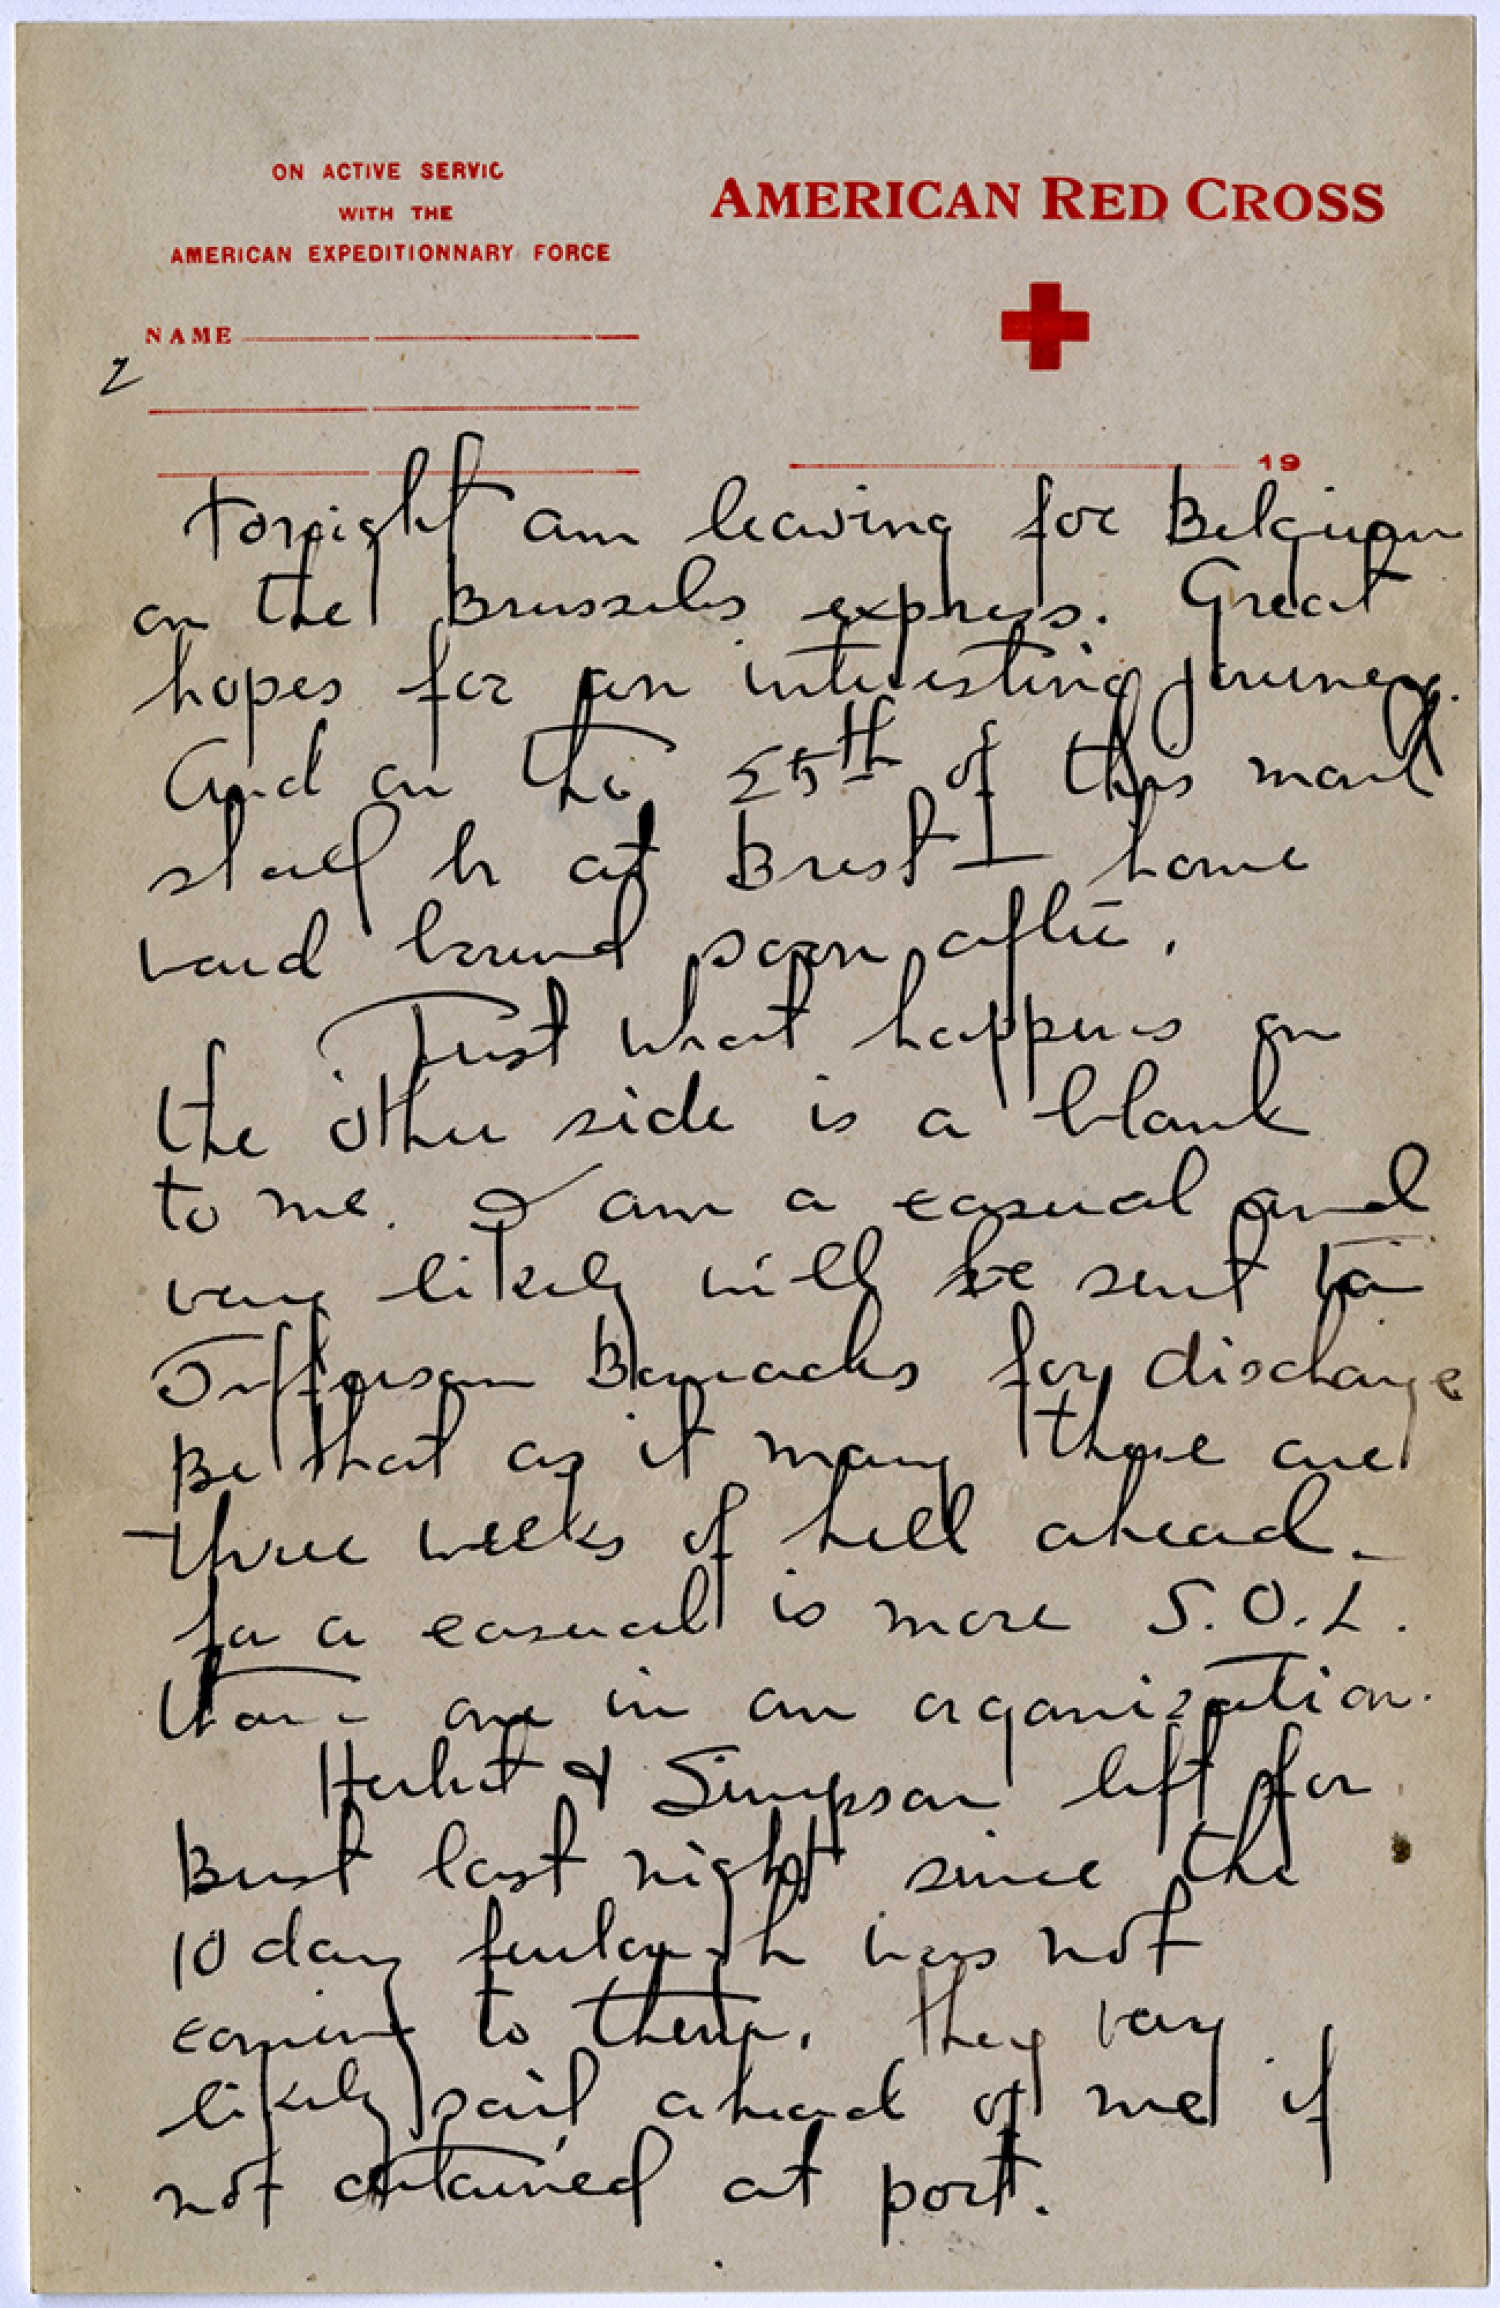 ON ACTIVE SERVIC
WITH THE
AMERICAN EXPEDITIONNARY FORCE
AMERICAN RED CROSS
NAME
2
19
Tonight am leaving for Belgium
on the Brussels express. Great
hopes for an interesting journey.
And on the 25th of this month
shall be at Brest — home
ward bound soon after.
Just what happens on
the other side is a blank
to me. I am a casual and
very likely will be sent to
Jefferson Barracks for discharge
Be that as it may there are
three weeks of hell ahead –
for a casual is more S.O.L.
than one in an organization.
Herbert & Simpson left for
Brest last night since the
10 day furlough was not
coming to them. They very
likely sail ahead of me if
not detained at port.